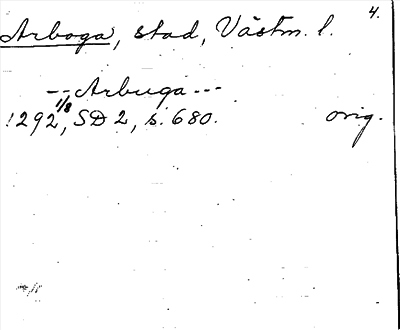 4.
Arboga, stad, Västm. l.
--Arbuga---
1292 1/8, SD 2, s. 680. orig.